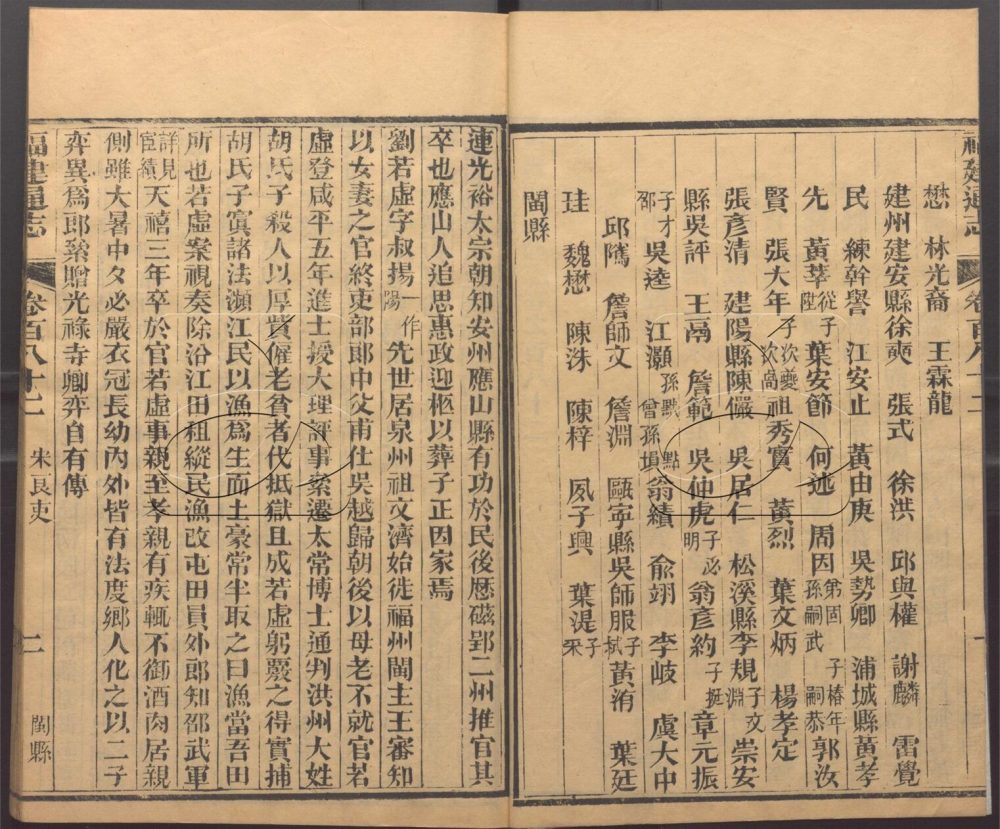 福建通志 卷百八十二 一
懋 林光裔 王霖龍
建州建安縣徐奭 張式 徐洪 邱與權 謝麟 雷覺
民 練幹譽 江安止 黃由庚 吳勢卿 浦城縣黃孝
先 黃莘從子陞 葉安節 何述 周因弟固孫嗣武 子椿年嗣恭郭汝
賢 張大年子次夔次卨祖秀實 黃烈 葉文炳 楊孝定
張彥清 建陽縣陳儼 吳居仁 松溪縣李規子文淵 崇安
縣吳評 王鬲 詹範 吳仲虎子必明 翁彥約子挺 章元振
子才邵 吳逵 江灝孫戰點曾孫塤翁績 俞翊 李岐 虞大中
邱隲 詹師文 詹淵 甌寧縣吳師服子栻黃洧 葉廷
珪 魏懋 陳洙 陳梓 夙子興 葉湜子采
閩縣
連光裕太宗朝知安州應山縣有功於民後歷磁郢二州推官其
卒也應山人追思惠政迎柩以葬子正因家焉
劉若虛字叔揚一作陽 先世居泉州祖文濟始徙福州閩主王審知
以女妻之官終吏部郎中父甫仕吳越歸朝後以母老不就官若
虛登咸平五年進士授大理評事累遷太常博士通判洪州大姓
胡氏子殺人以厚貲僱老貧者代抵獄且成若虛躬覈之得實捕
胡氏子寘諸法瀕江民以漁為生而土豪常半取之曰漁當吾田
所也若虛案視奏除汾江田租縱民漁改屯田員外郎知邵武軍
詳見宦績天禧三年卒於官若虛事親至孝親有疾輒不御酒肉居親
側雖大暑中夕必嚴衣冠長幼內外皆有法度鄉人化之以二子
弈異為郎累贈光祿寺卿弈自有傳
福建通志 卷百八十二 宋良吏 二 閩縣